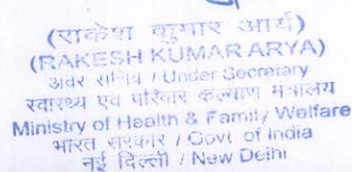 (राकेश कुमार आर्य)
(RAKESH KUMAR ARYA)
अवर सचिव / Under Secretary
स्वास्थ्य एवं परिवार कल्याण मंत्रालय
Ministry of Health & Family Welfare
भारत सरकार / Govt of India
नई दिल्ली / New Delhi